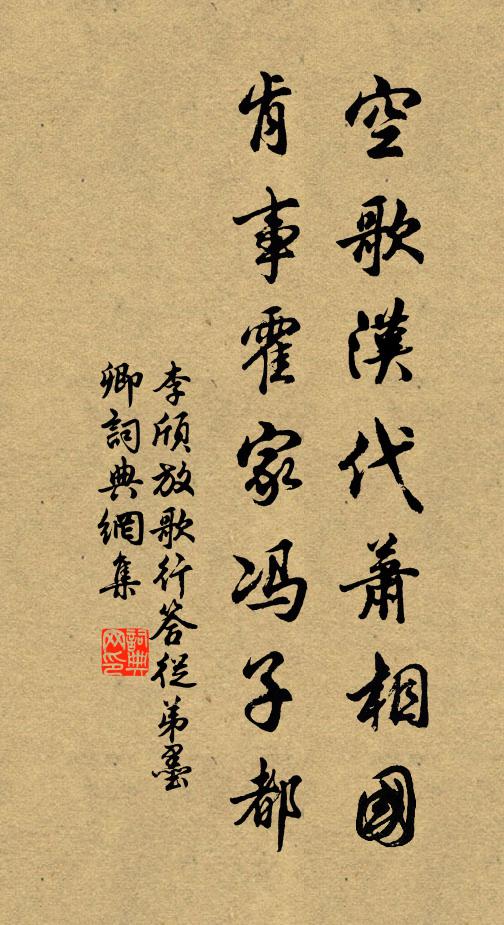 空歌漢代蕭相國
肯事霍家馮子都
李頎放歌行答從弟墨
卿詞典網集
詞典
网印